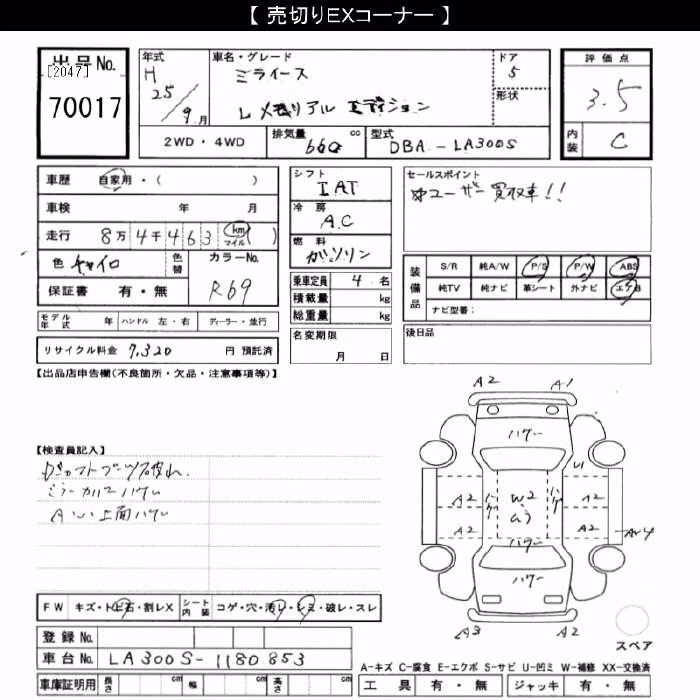 【 売切りEXコーナー 】
出品No.
[2047]
70017
年式
H
25/9月
車名・グレード
ミライース
L メモリアル エディション
ドア
5
形状
評価点
3.5
内装
C
2WD・4WD
排気量
660
cc
型式
DBA - LA300S
車歴
自家用・( )
車検 年 月
走行 8万4千463 km マイル ( )
色 チャイロ
色替
カラーNo.
R69
保証書 有・無
シフト
IAT
冷房
A.C
燃料
ガソリン
乗車定員 4 名
積載量 kg
総重量 kg
名変期限
月 日
セールスポイント
ユーザー買取車!!
装備品
S/R 純A/W P/S P/W ABS
純TV 純ナビ 革シート 外ナビ エアB
ナビ型番:
後日品
モデル年式 年
ハンドル 左・右
ディーラー・並行
リサイクル料金 7,320 円 預託済
【出品店申告欄(不良箇所・欠品・注意事項等)】
【検査員記入】
ドシャフトブーツ破れ
ミラーカバーハゲ
上面ハゲ
A2
A1
ハゲ
U1
A2
ハゲ
W2
ムラ
ハゲ
A2
A2
A2
ハゲ
ハゲ
A3
A2
スペア
FW キズ・トビ石・割レX
シート内装 コゲ・穴・汚レ・シミ・破レ・スレ
登録No.
車台No. LA300S-1180853
車庫証明用 長さ cm 幅 cm 高さ cm
A-キズ C-腐食 E-エクボ S-サビ U-凹ミ W-補修 XX-交換済
工具 有・無 ジャッキ 有・無